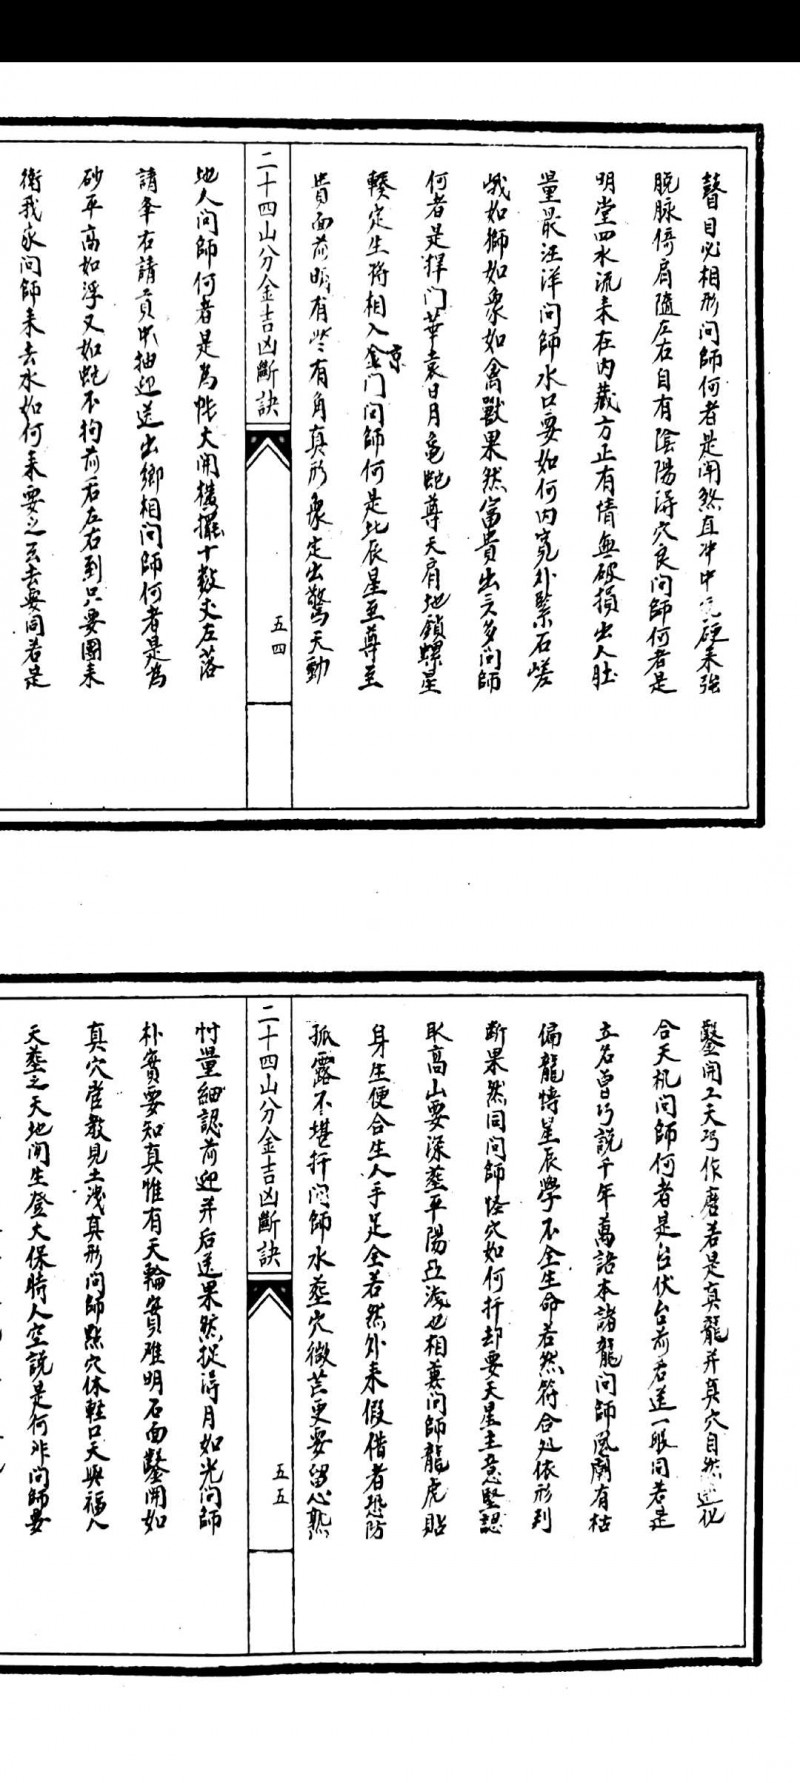 瞽目必相形問師何者是鬥煞直冲中硬来強
脱脉倚肩隨左右自有陰陽湯穴良問師何者是
明堂四水流来在内藏方正有情無破損出人肚
量最汪洋問師水口要如何内寬外緊石嵯
峨如獅如象如禽獸果然富貴出云多問師
何者是捍门華表日月龜蛇尊天肩地鎖螺星
轃定生将相入金京门問師何是北辰星至尊至
貴面前有些有角真形象定出驚天動
二十四山分金吉凶斷訣
五四
地人問師何者是為帐大開横擺十数丈左落
請奉右請貢中抽迎送出鄉相問師何者是為
砂平高如浮又如蛇不拘前后左右到只要團来
衛我家問師来去水如何来要之玄去要同若是
鑿開工天巧作磨若是真龍并真穴自然造化
合天机問師何者是台伏台前若送一眼同若是
立名曾巧說千年萬話本諸龍問師風蘭有枯
偏龍情星辰學不全生命若然符合处依形到
断果然同問師怪穴如何扦却要天星主意堅認
取高山要深葬平陽亞淺也相兼問師龍虎貼
身生便合生人手足全若然外来假借者恐防
孤露不堪扦問師水葬穴微茫更要留心熟
二十四山分金吉凶斷訣
五五
忖量細認前迎并后送果然捉得月如光問師
朴實要知真惟有天輪實难明石面鑿開如
真穴當教見土浅真形問師點穴休輕口天與福人
天葬之天地間生登大保時人空說是何非問師要